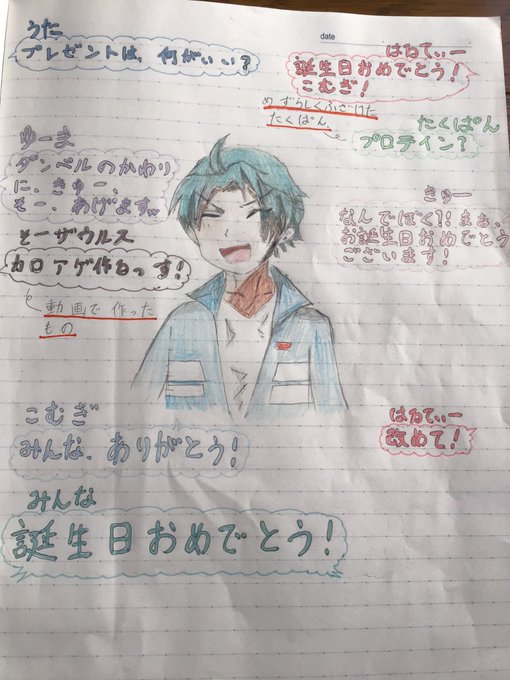 うた
プレゼントは、何がいい?
date
はねてぃー
誕生日おめでとう!
こむぎ!
めずらしくふざけた
たくぱん。
たくぱん
プロテイン?
ゆーま
ダンベルのかわり
に、きゅー、
そー、あげます。
きゅー
なんでぼく?!まぁ、
お誕生日おめでとう
ございます!
そーザウルス
カロアゲ作るっす!
動画で作った
もの
こむぎ
みんな、ありがとう!
はねてぃー
改めて!
みんな
誕生日おめでとう!